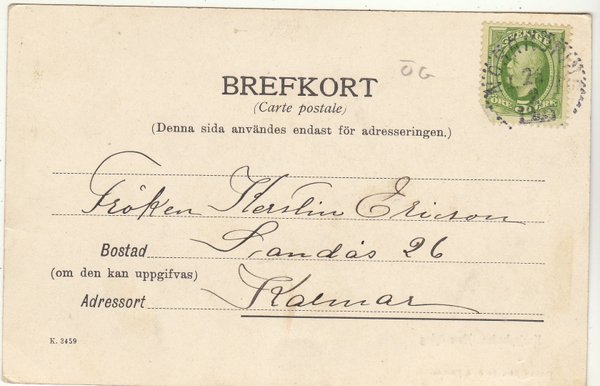 ÖG
BREFKORT
(Carte postale)
(Denna sida användes endast för adresseringen.)
Fröken Kerstin Ericson
Bostad Landås 26
(om den kan uppgifvas)
Adressort Kalmar
K. 3459